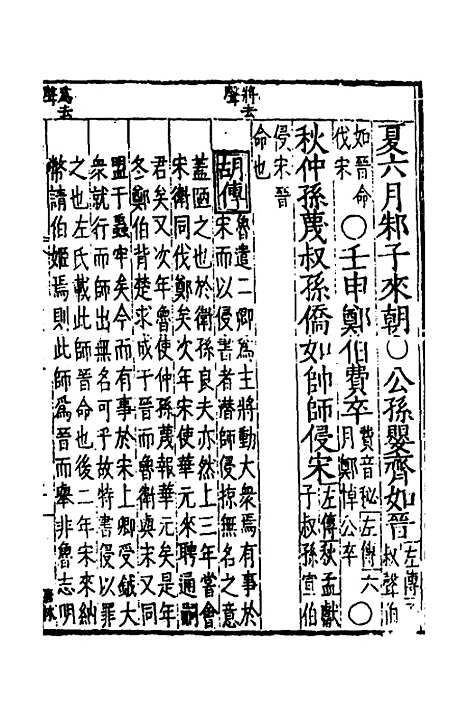 將去聲
爲去聲
夏六月邾子來朝〇公孫嬰齊如晉左傳子叔聲伯
如晉命伐宋〇壬申鄭伯費卒費音秘左傳六月鄭悼公卒〇
秋仲孫蔑叔孫僑如帥師侵宋左傳秋孟獻子叔孫宣伯
侵宋晉命也
胡傳魯遣二卿爲主將動大衆焉有事於
宋而以侵害者潛師侵掠無名之意
蓋陋之也於衛孫良夫亦然上三年嘗會
宋衛同伐鄭矣次年宋使華元來聘通嗣
君矣又次年魯使仲孫蔑報華元矣是年
冬鄭伯背楚求成于晉而魯衛與宋又同
盟于蟲牢矣今而有事於宋上卿受鉞大
衆就行而師出無名可乎故特書侵以罪
之也左氏載此師晉命也後二年宋來納
幣請伯姬焉則此師爲晉而舉非魯志明